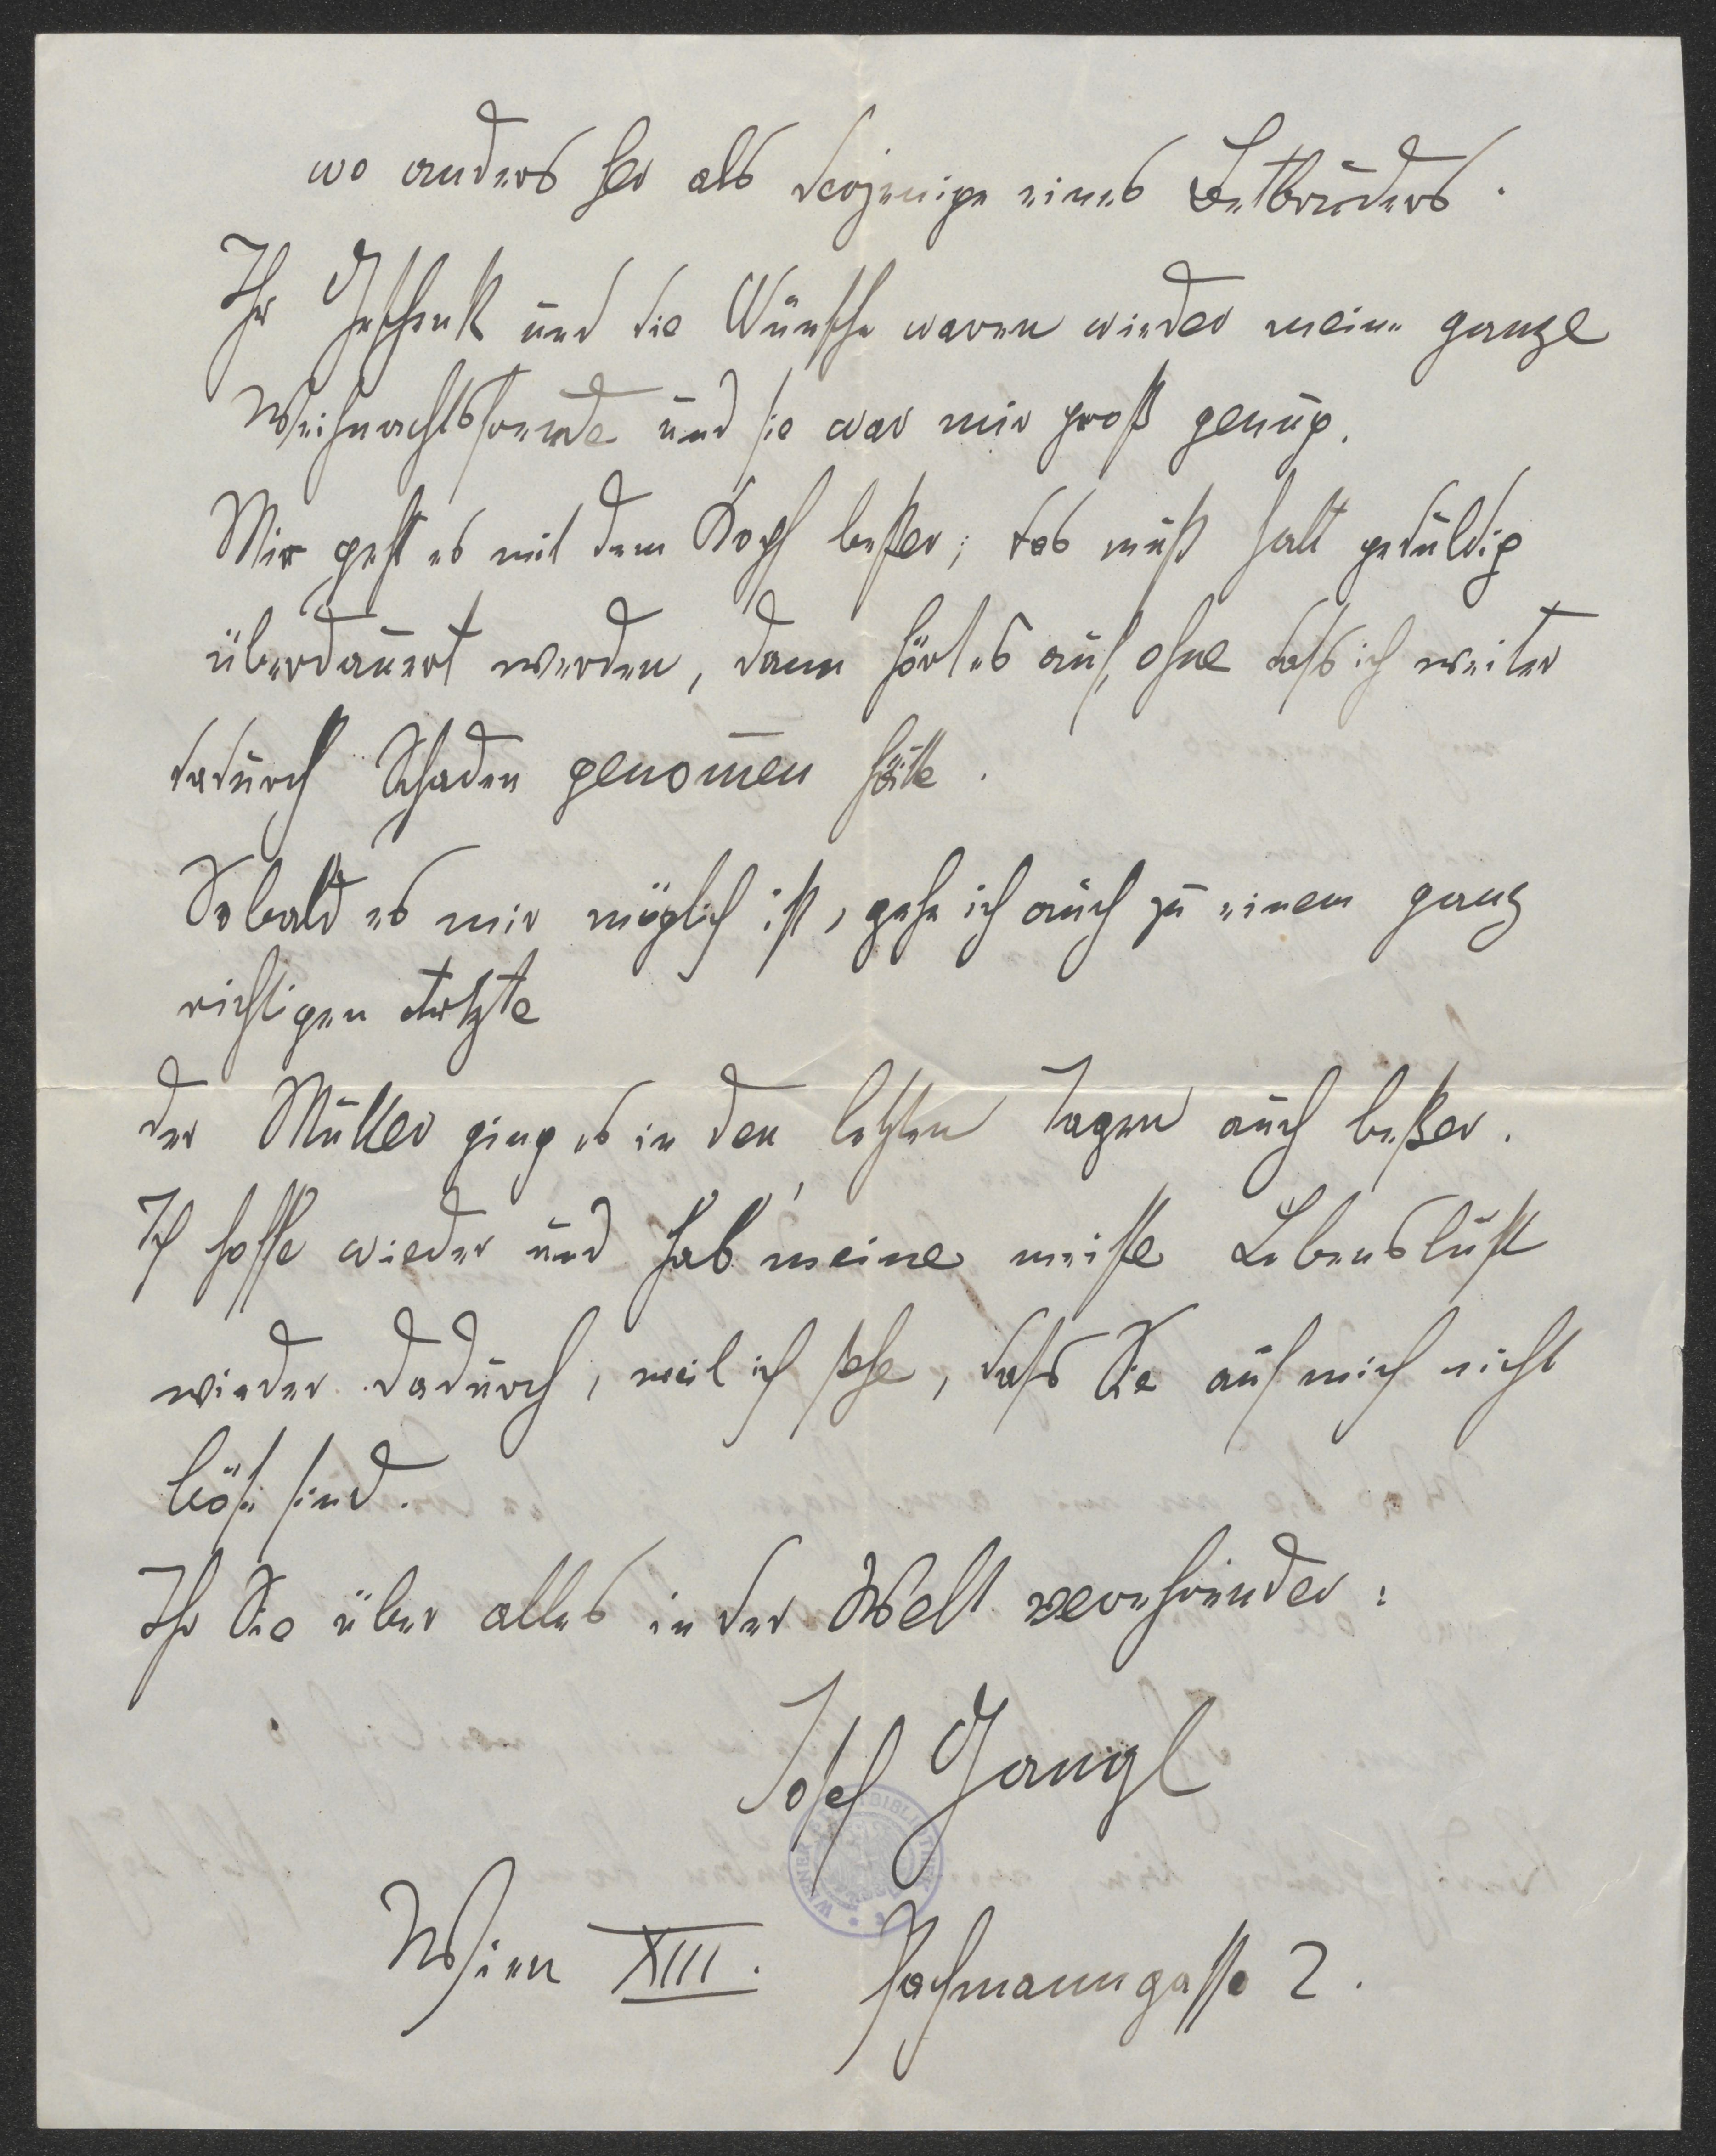 wo anders her als derjenige eines Betbruders.
Ihr Geschenk und die Wünsche waren wieder meine ganze
Weihnachtsfreude und sie war mir groß genug.
Mir geht es mit dem Kopf beßer; das muß halt geduldig
überdauert werden, dann hört es auf, ohne dass ich weiter
dadurch Schaden genom̄en hätte.
Sobald es mir möglich ist, gehe ich auch zu einem ganz
richtigen Artzte
der Mutter ging es in den letzten Tagen auch beßer.
Ich hoffe wieder und hab' meine meiste Lebenslust
wieder dadurch, weil ich sehe, dass Sie auf mich nicht
böse sind.
Ihr Sie über alles in der Welt verehrender:
Josef Gangl
Wien XIII. 2.